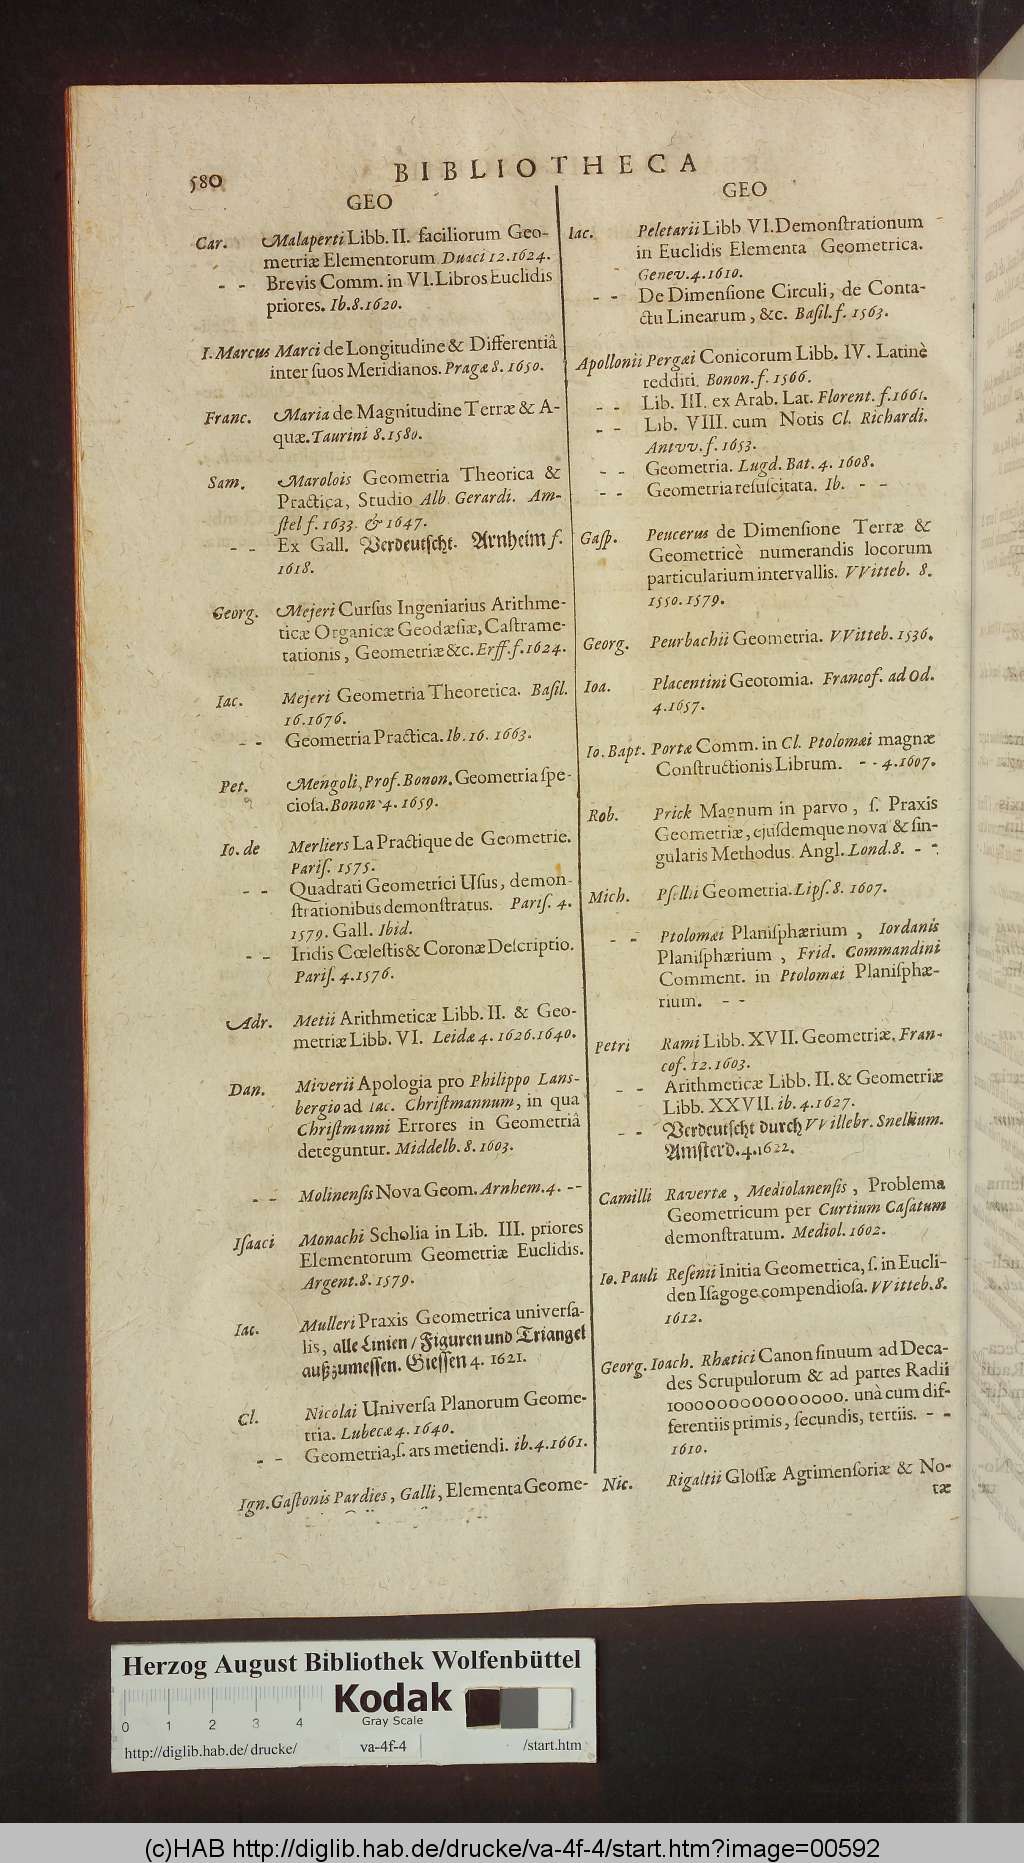 580
BIBLIOTHECA
GEO
Car. Malaperti Libb. II. faciliorum Geo-
metriæ Elementorum Duaci 12. 1624.
- - Brevis Comm. in VI. Libros Euclidis
priores. Ib. 8. 1620.
I. Marcus Marci de Longitudine & Differentiâ
inter ſuos Meridianos. Pragæ 8. 1650.
Franc. Maria de Magnitudine Terræ & A-
quæ. Taurini 8. 1580.
Sam. Marolois Geometria Theorica &
Practica, Studio Alb. Gerardi. Am-
ſtel f. 1633. & 1647.
- - Ex Gall. Verdeutſcht. Arnheim f.
1618.
Georg. Mejeri Curſus Ingeniarius Arithme-
ticæ Organicæ Geodæſiæ, Caſtrame-
tationis, Geometriæ &c. Erff. f. 1624.
Iac. Mejeri Geometria Theoretica. Baſil.
16. 1676.
- - Geometria Practica. Ib. 16. 1663.
Pet. Mengoli, Prof. Bonon. Geometria ſpe-
cioſa. Bonon 4. 1659.
Io. de Merliers La Practique de Geometrie.
Pariſ. 1575.
- - Quadrati Geometrici Uſus, demon-
ſtrationibus demonſtratus. Pariſ. 4.
1579. Gall. Ibid.
- - Iridis Cœleſtis & Coronæ Deſcriptio.
Pariſ. 4. 1576.
Adr. Metii Arithmeticæ Libb. II. & Geo-
metriæ Libb. VI. Leidæ 4. 1626. 1640.
Dan. Miverii Apologia pro Philippo Lans-
bergio ad Iac. Chriſtmannum, in qua
Chriſtmanni Errores in Geometriâ
deteguntur. Middelb. 8. 1603.
- - Molinenſis Nova Geom. Arnhem. 4. - -
Iſaaci Monachi Scholia in Lib. III. priores
Elementorum Geometriæ Euclidis.
Argent. 8. 1579.
Iac. Mulleri Praxis Geometrica univerſa-
lis, alle Linien / Figuren und Triangel
außzumeſſen. Gieſſen 4. 1621.
Cl. Nicolai Univerſa Planorum Geome-
tria. Lubecæ 4. 1640.
- - Geometria, ſ. ars metiendi. ib. 4. 1661.
Ign. Gaſtonis Pardies, Galli, Elementa Geome-
GEO
Iac. Peletarii Libb VI. Demonſtrationum
in Euclidis Elementa Geometrica.
Genev. 4. 1610.
- - De Dimenſione Circuli, de Conta-
ctu Linearum, &c. Baſil. f. 1563.
Apollonii Pergæi Conicorum Libb. IV. Latinè
redditi. Bonon. f. 1566.
- - Lib. III. ex Arab. Lat. Florent. f. 1661.
- - Lib. VIII. cum Notis Cl. Richardi.
Antvv. f. 1653.
- - Geometria. Lugd. Bat. 4. 1608.
- - Geometria reſuſcitata. Ib. - -
Gaſp. Peucerus de Dimenſione Terræ &
Geometricè numerandis locorum
particularium intervallis. VVitteb. 8.
1550. 1579.
Georg. Peurbachii Geometria. VVitteb. 1536.
Ioa. Placentini Geotomia. Francof. ad Od.
4. 1657.
Io. Bapt. Portæ Comm. in Cl. Ptolomæi magnæ
Conſtructionis Librum. - - 4. 1607.
Rob. Prick Magnum in parvo, ſ. Praxis
Geometriæ, ejuſdemque nova & ſin-
gularis Methodus. Angl. Lond. 8. - -
Mich. Pſellii Geometria. Lipſ. 8. 1607.
- - Ptolomæi Planiſphærium, Iordanis
Planiſphærium, Frid. Commandini
Comment. in Ptolomæi Planiſphæ-
rium. - -
Petri Rami Libb. XVII. Geometriæ. Fran-
cof. 12. 1603.
- - Arithmeticæ Libb. II. & Geometriæ
Libb. XXVII. ib. 4. 1627.
- - Verdeutſcht durch VVillebr. Snellium.
Amſterd. 4. 1622.
Camilli Ravertæ, Mediolanenſis, Problema
Geometricum per Curtium Caſatum
demonſtratum. Mediol. 1602.
Io. Pauli Reſenii Initia Geometrica, ſ. in Eucli-
den Iſagoge compendioſa. VVitteb. 8.
1612.
Georg. Ioach. Rhætici Canon ſinuum ad Deca-
des Scrupulorum & ad partes Radii
1000000000000000. unà cum dif-
ferentiis primis, ſecundis, tertiis. - -
1610.
Nic. Rigaltii Gloſſæ Agrimenſoriæ & No-
tæ
Herzog August Bibliothek Wolfenbüttel
Kodak
Gray Scale
0 1 2 3 4
http://diglib.hab.de/drucke/ va-4f-4 /start.htm
(c)HAB http://diglib.hab.de/drucke/va-4f-4/start.htm?image=00592